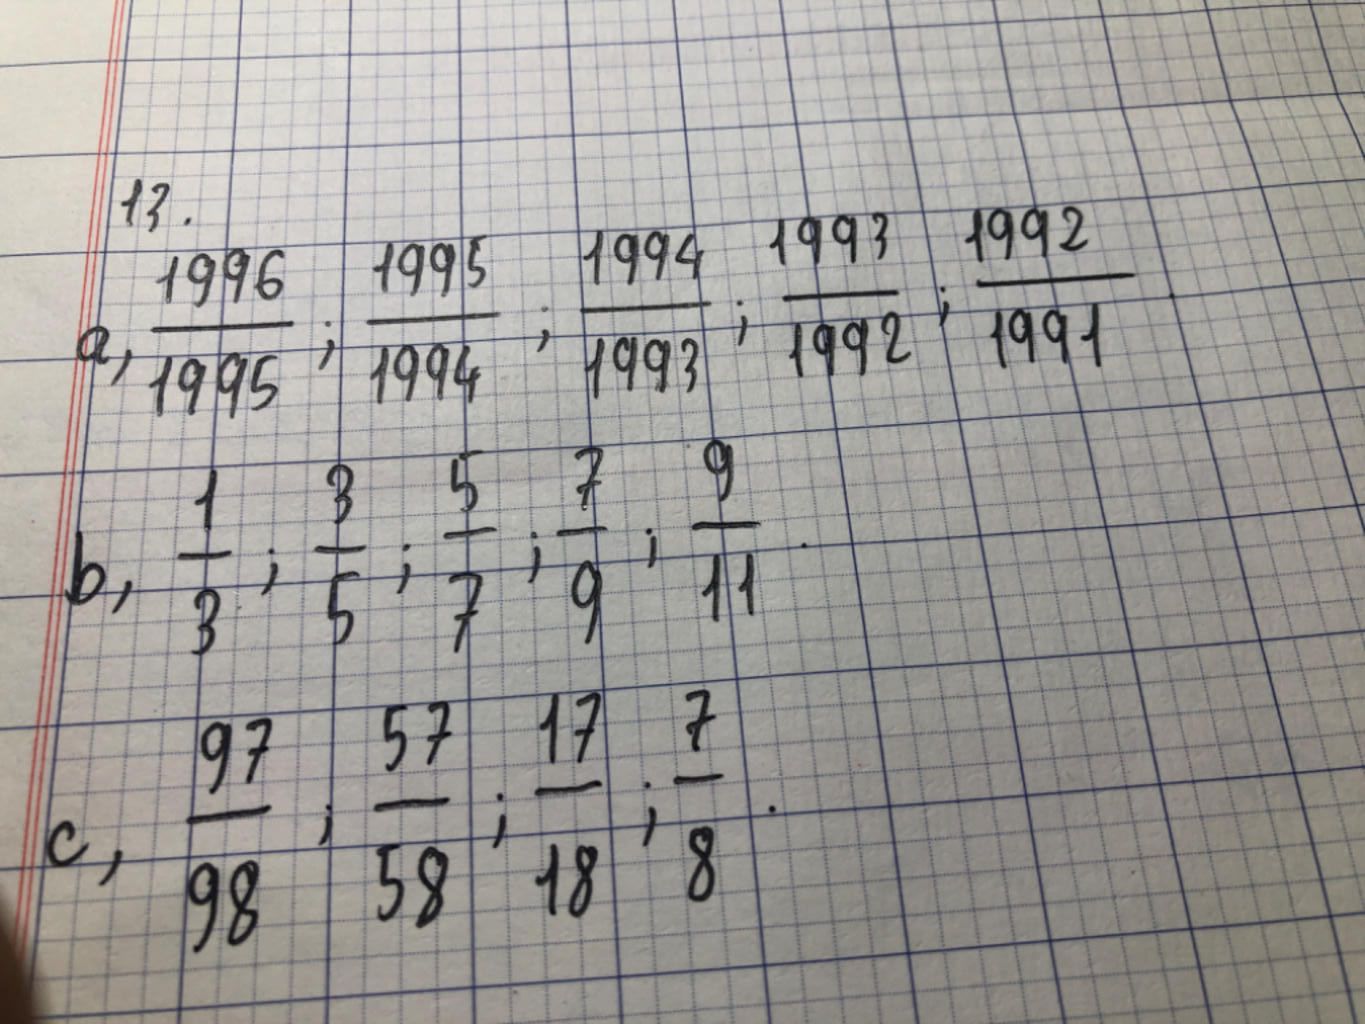 13.
a, 1996/1995 ; 1995/1994 ; 1994/1993 ; 1993/1992 ; 1992/1991 .
b, 1/3 ; 3/5 ; 5/7 ; 7/9 ; 9/11 .
c, 97/98 ; 57/58 ; 17/18 ; 7/8 .